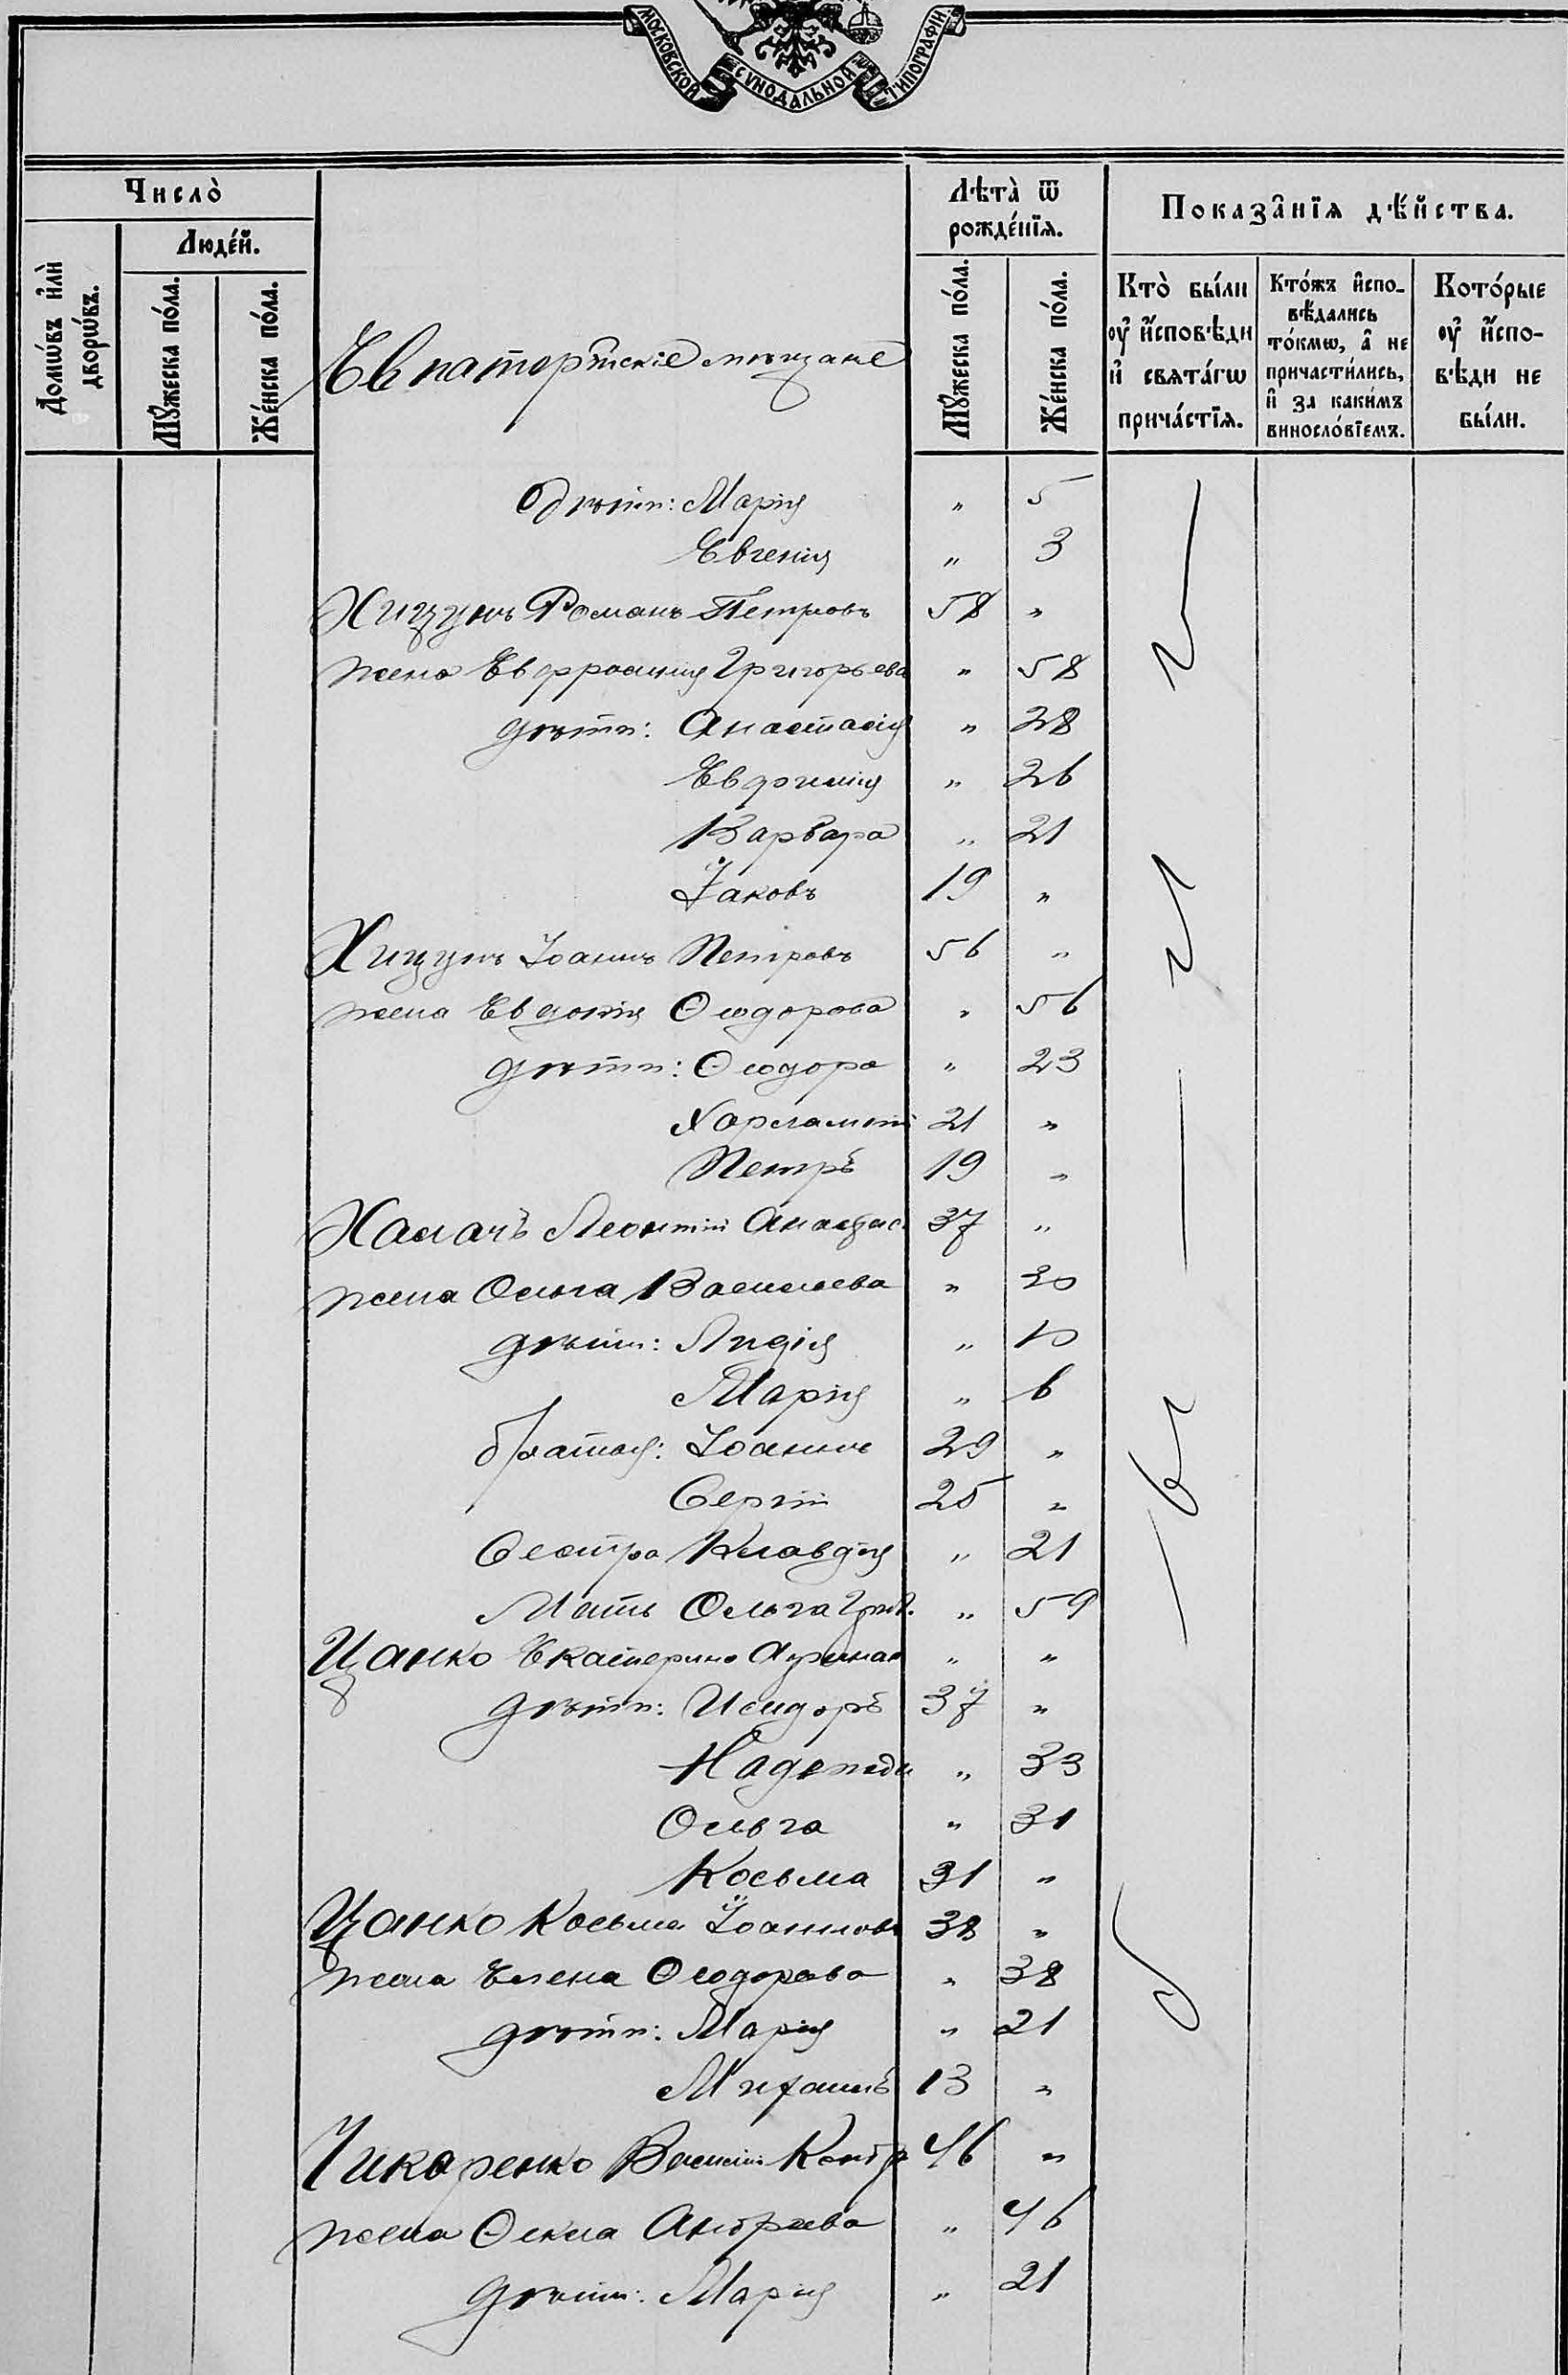 МОСКОВСКОЙ СѴНОДАЛЬНОЙ ТИПОГРАФІИ
Число̀
Домѡ́въ и҆лѝ дворѡ́въ.
Люде́й.
Мꙋ́жеска по́ла.
Же́нска по́ла.
Евпаторійскіе мѣщане
Лѣта̀ ѿ рожде́нїѧ.
Мꙋ́жеска по́ла.
Же́нска по́ла.
Показа̑нїѧ дѣ́йства.
Кто̀ бы́ли оу҆ и҆́сповѣди и҆ свѧта́гѡ прича́стїѧ.
Кто́жъ и҆спо-вѣ́дались то́кмѡ, а҆ не причасти́лись, и҆ за каки́мъ винослові́емъ.
Кото́рые оу҆ и҆́спо-вѣди не бы́ли.
дѣти: Марія " 5
Евгенія " 3
Хицунъ Романъ Петровъ 58 "
жена Евфросинія Григорьева " 58
дѣти: Анастасія " 28
Евфимія " 26
Варвара " 21
Іаковъ 19 "
Хицунъ Іоаннъ Петровъ 56 "
жена Евдокія Ѳеодорова " 56
дѣти: Ѳеодора " 23
Харлампій 21 "
Петръ 19 "
Леонтій 37 "
жена Ольга Васильева " 30
дѣти: Лидія " 10
Марія " 6
братья: Іоаннъ 29 "
Сергій 25 "
Сестра Клавдія " 21
Мать Ольга Григ. " 59
Цанко Екатерина " "
дѣти: Исидоръ 37 "
Надежда " 33
Ольга " 31
Косьма 31 "
Цанко Косьма Іоанновъ 38 "
жена Елена Ѳеодорова " 38
дѣти: Марія " 21
Михаилъ 13 "
Чикаренко Василій Кондр 46 "
жена Ѳекла Андреева " 46
дѣти: Марія " 21